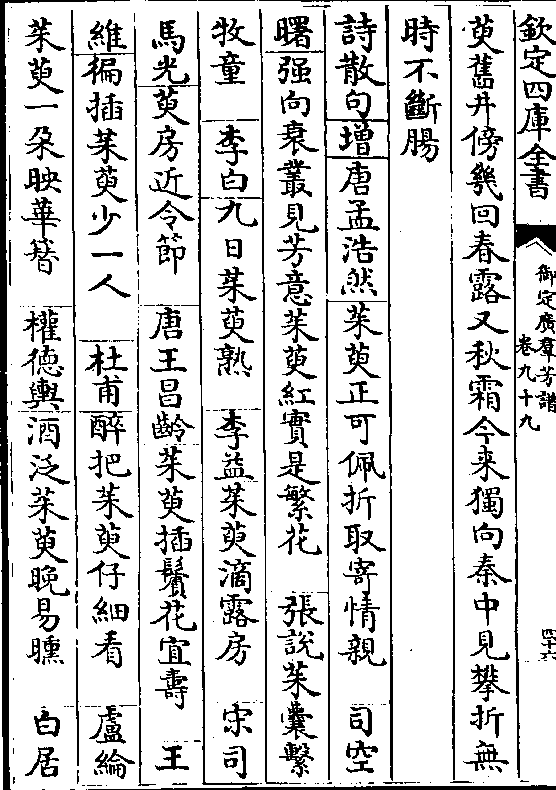 欽定四庫全書
御定廣羣芳譜
卷九十九
四十六
萸舊井傍幾回春露又秋霜今来獨向秦中見攀折無
時不斷腸
詩散句增唐孟浩然茱萸正可佩折取寄情親 司空
曙强向衰叢見芳意茱萸紅實是繁花 張說茱囊繫
牧童 李白九日茱萸熟 李益茱萸滴露房 宋司
馬光萸房近令節 唐王昌齡茱萸插鬢花宜壽 王
維徧插茱萸少一人 杜甫醉把茱萸仔細看 盧綸
茱萸一朶映華簪 權德輿酒泛茱萸晚易曛 白居